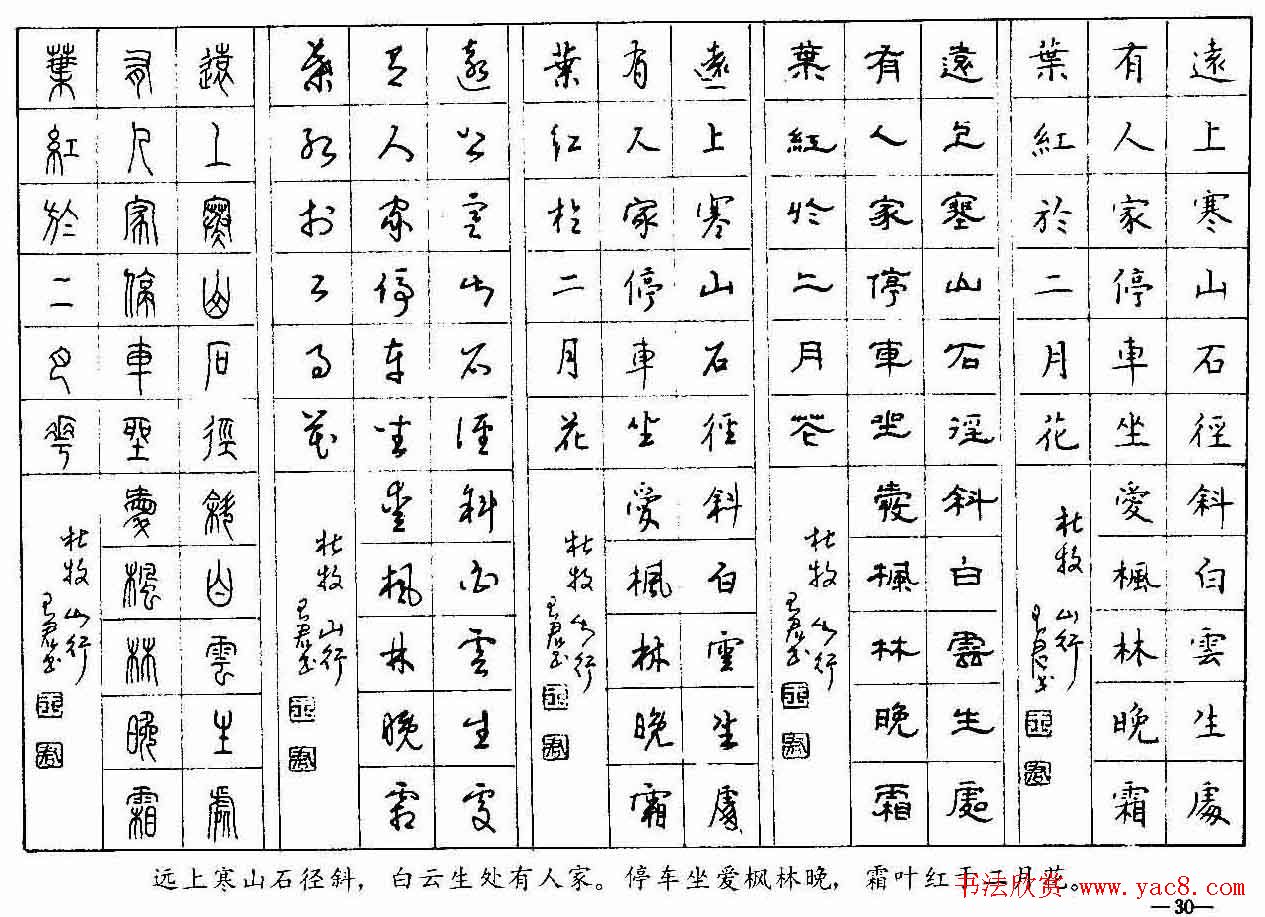 遠上寒山石徑斜白雲生處
有人家停車坐愛楓林晚霜
葉紅於二月花
杜牧 山行
遠上寒山石徑斜白雲生處
有人家停車坐愛楓林晚霜
葉紅於二月花
杜牧 山行
遠上寒山石徑斜白雲生處
有人家停車坐愛楓林晚霜
葉紅於二月花
杜牧 山行
遠上寒山石徑斜白雲生處
有人家停車坐愛楓林晚霜
葉紅於二月花
杜牧 山行
遠上寒山石徑斜白雲生處
有人家停車坐愛楓林晚霜
葉紅於二月花
杜牧 山行
远上寒山石径斜，白云生处有人家。停车坐爱枫林晚，霜叶红于二月花。
书法欣赏 www.yac8.com
—30—